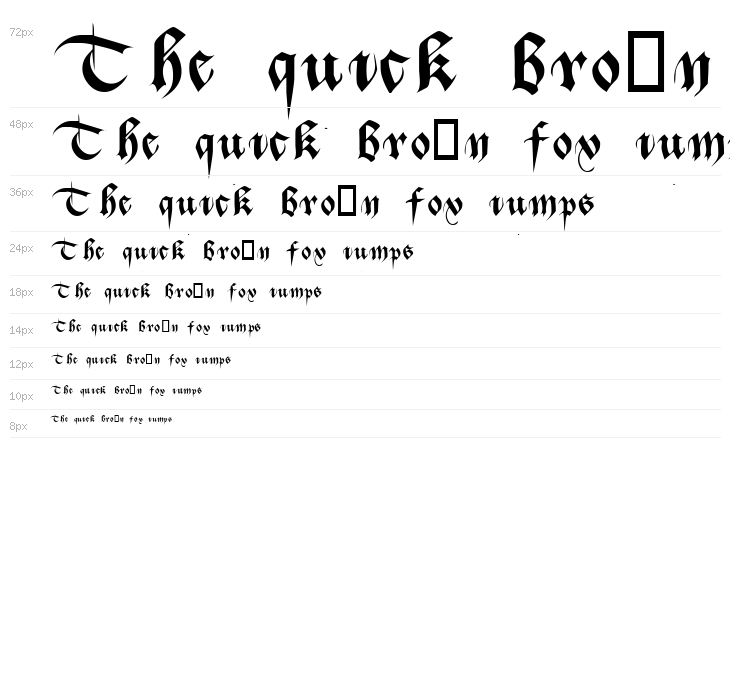 72px The quick bro□n
48px The quick bro□n fox jum
36px The quick bro□n fox jumps
24px The quick bro□n fox jumps
18px The quick bro□n fox jumps
14px The quick bro□n fox jumps
12px The quick bro□n fox jumps
10px The quick bro□n fox jumps
8px The quick bro□n fox jumps